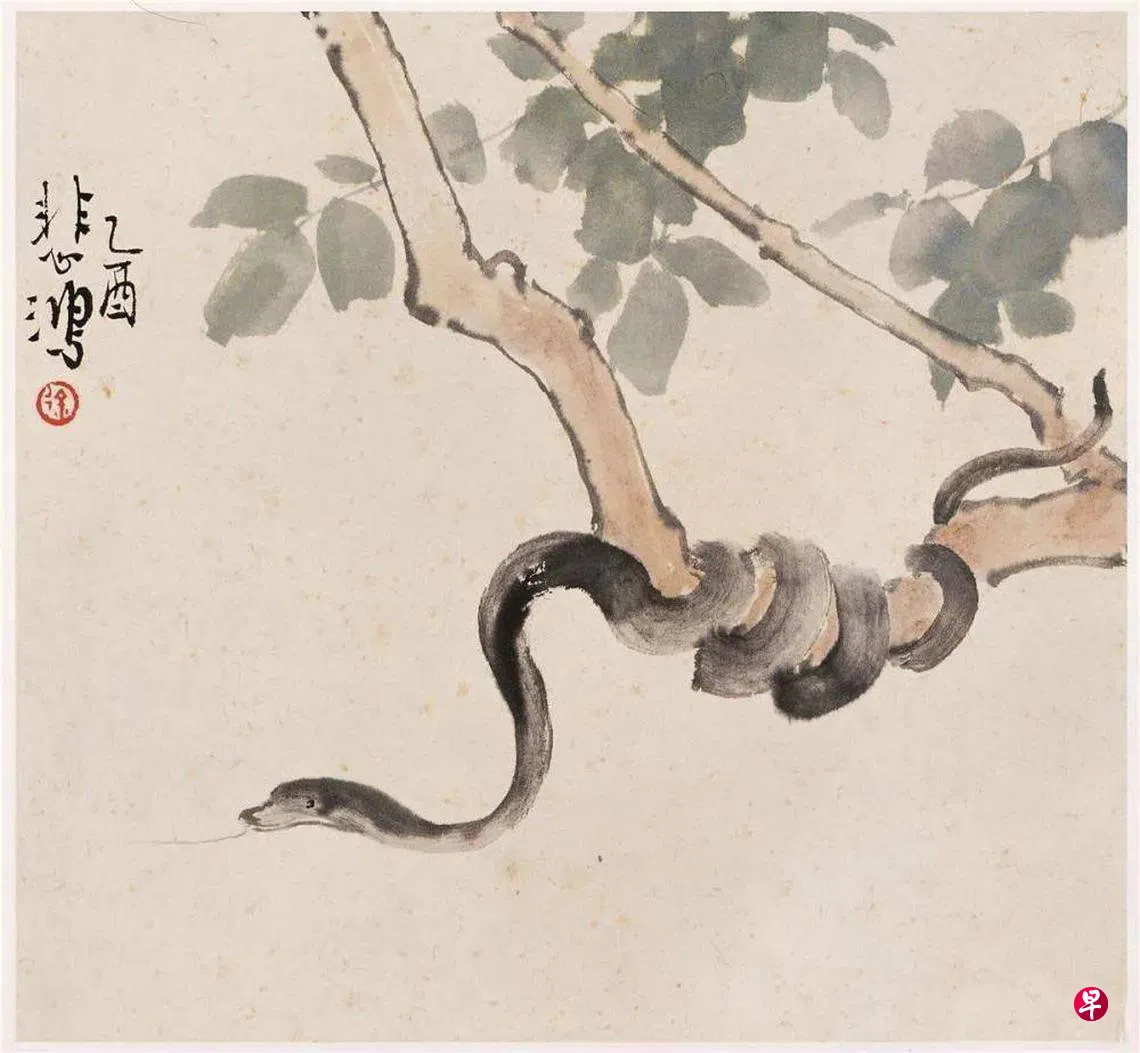 乙酉
悲鸿
徐
早